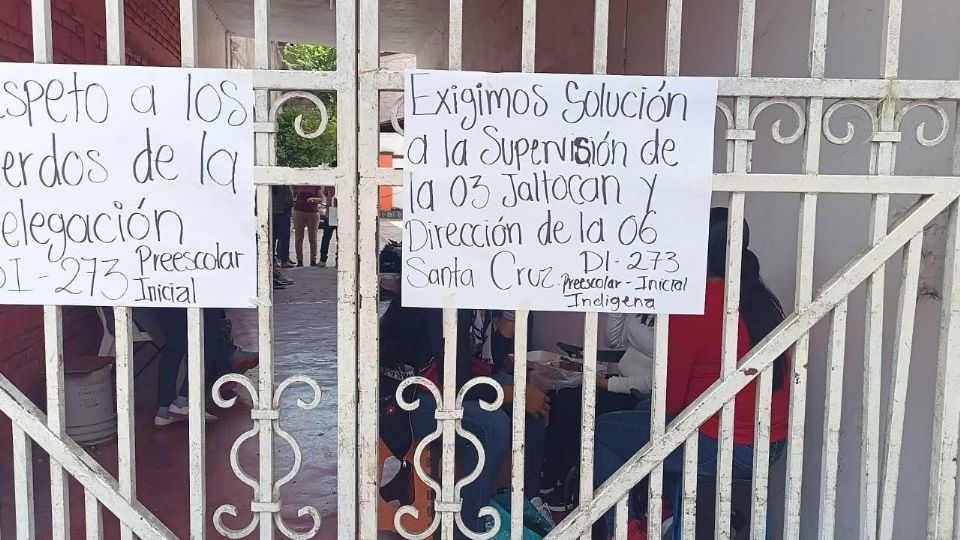 espeto a los
erdos de la
elegación
DI-273 Preescolar
Inicial
Exigimos Solución
a la Supervisión de
la 03 Jaltocan y
Dirección de la 06
Santa Cruz. DI-273
Preescolar - Inicial
Indigena